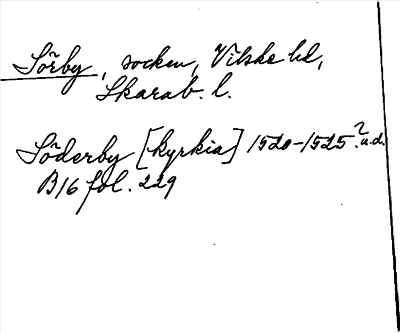 Sörby, socken, Vilske hd,
Skarab. l.
Söderby [kyrkia] 1520-1525? u.d.
B16 fol. 229